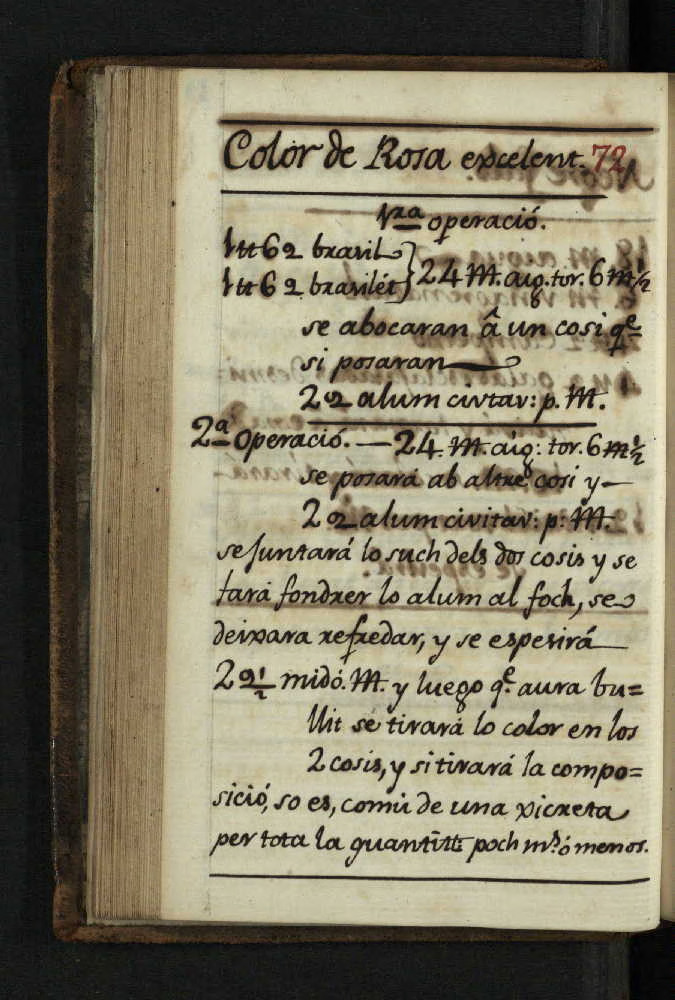 Color de Rosa excelent. 72
1ra operació.
1 tt 6 2 brasil
1 tt 6 2 brasilét } 24 M. aig. tor. 6 m 1/2
se abocaran â un cosi qe
si posaran
2 2 alum civtav: p. M.
2a operació. — 24 M. aig: tor. 6 m 1/2
se posará ab altre cosi y
2 2 alum civitav: p. M.
se juntará lo such dels dos cosis y se
fará fondrer lo alum al foch, se
deixara refredar, y se espesirá
2 2 1/2 midó. M. y luego qe. aura bu=
llit se tirará lo color en los
2 cosis, y si tirará la compo=
sició, so es, comú de una xicreta
per tota la quantitt poch ms. ó menos.